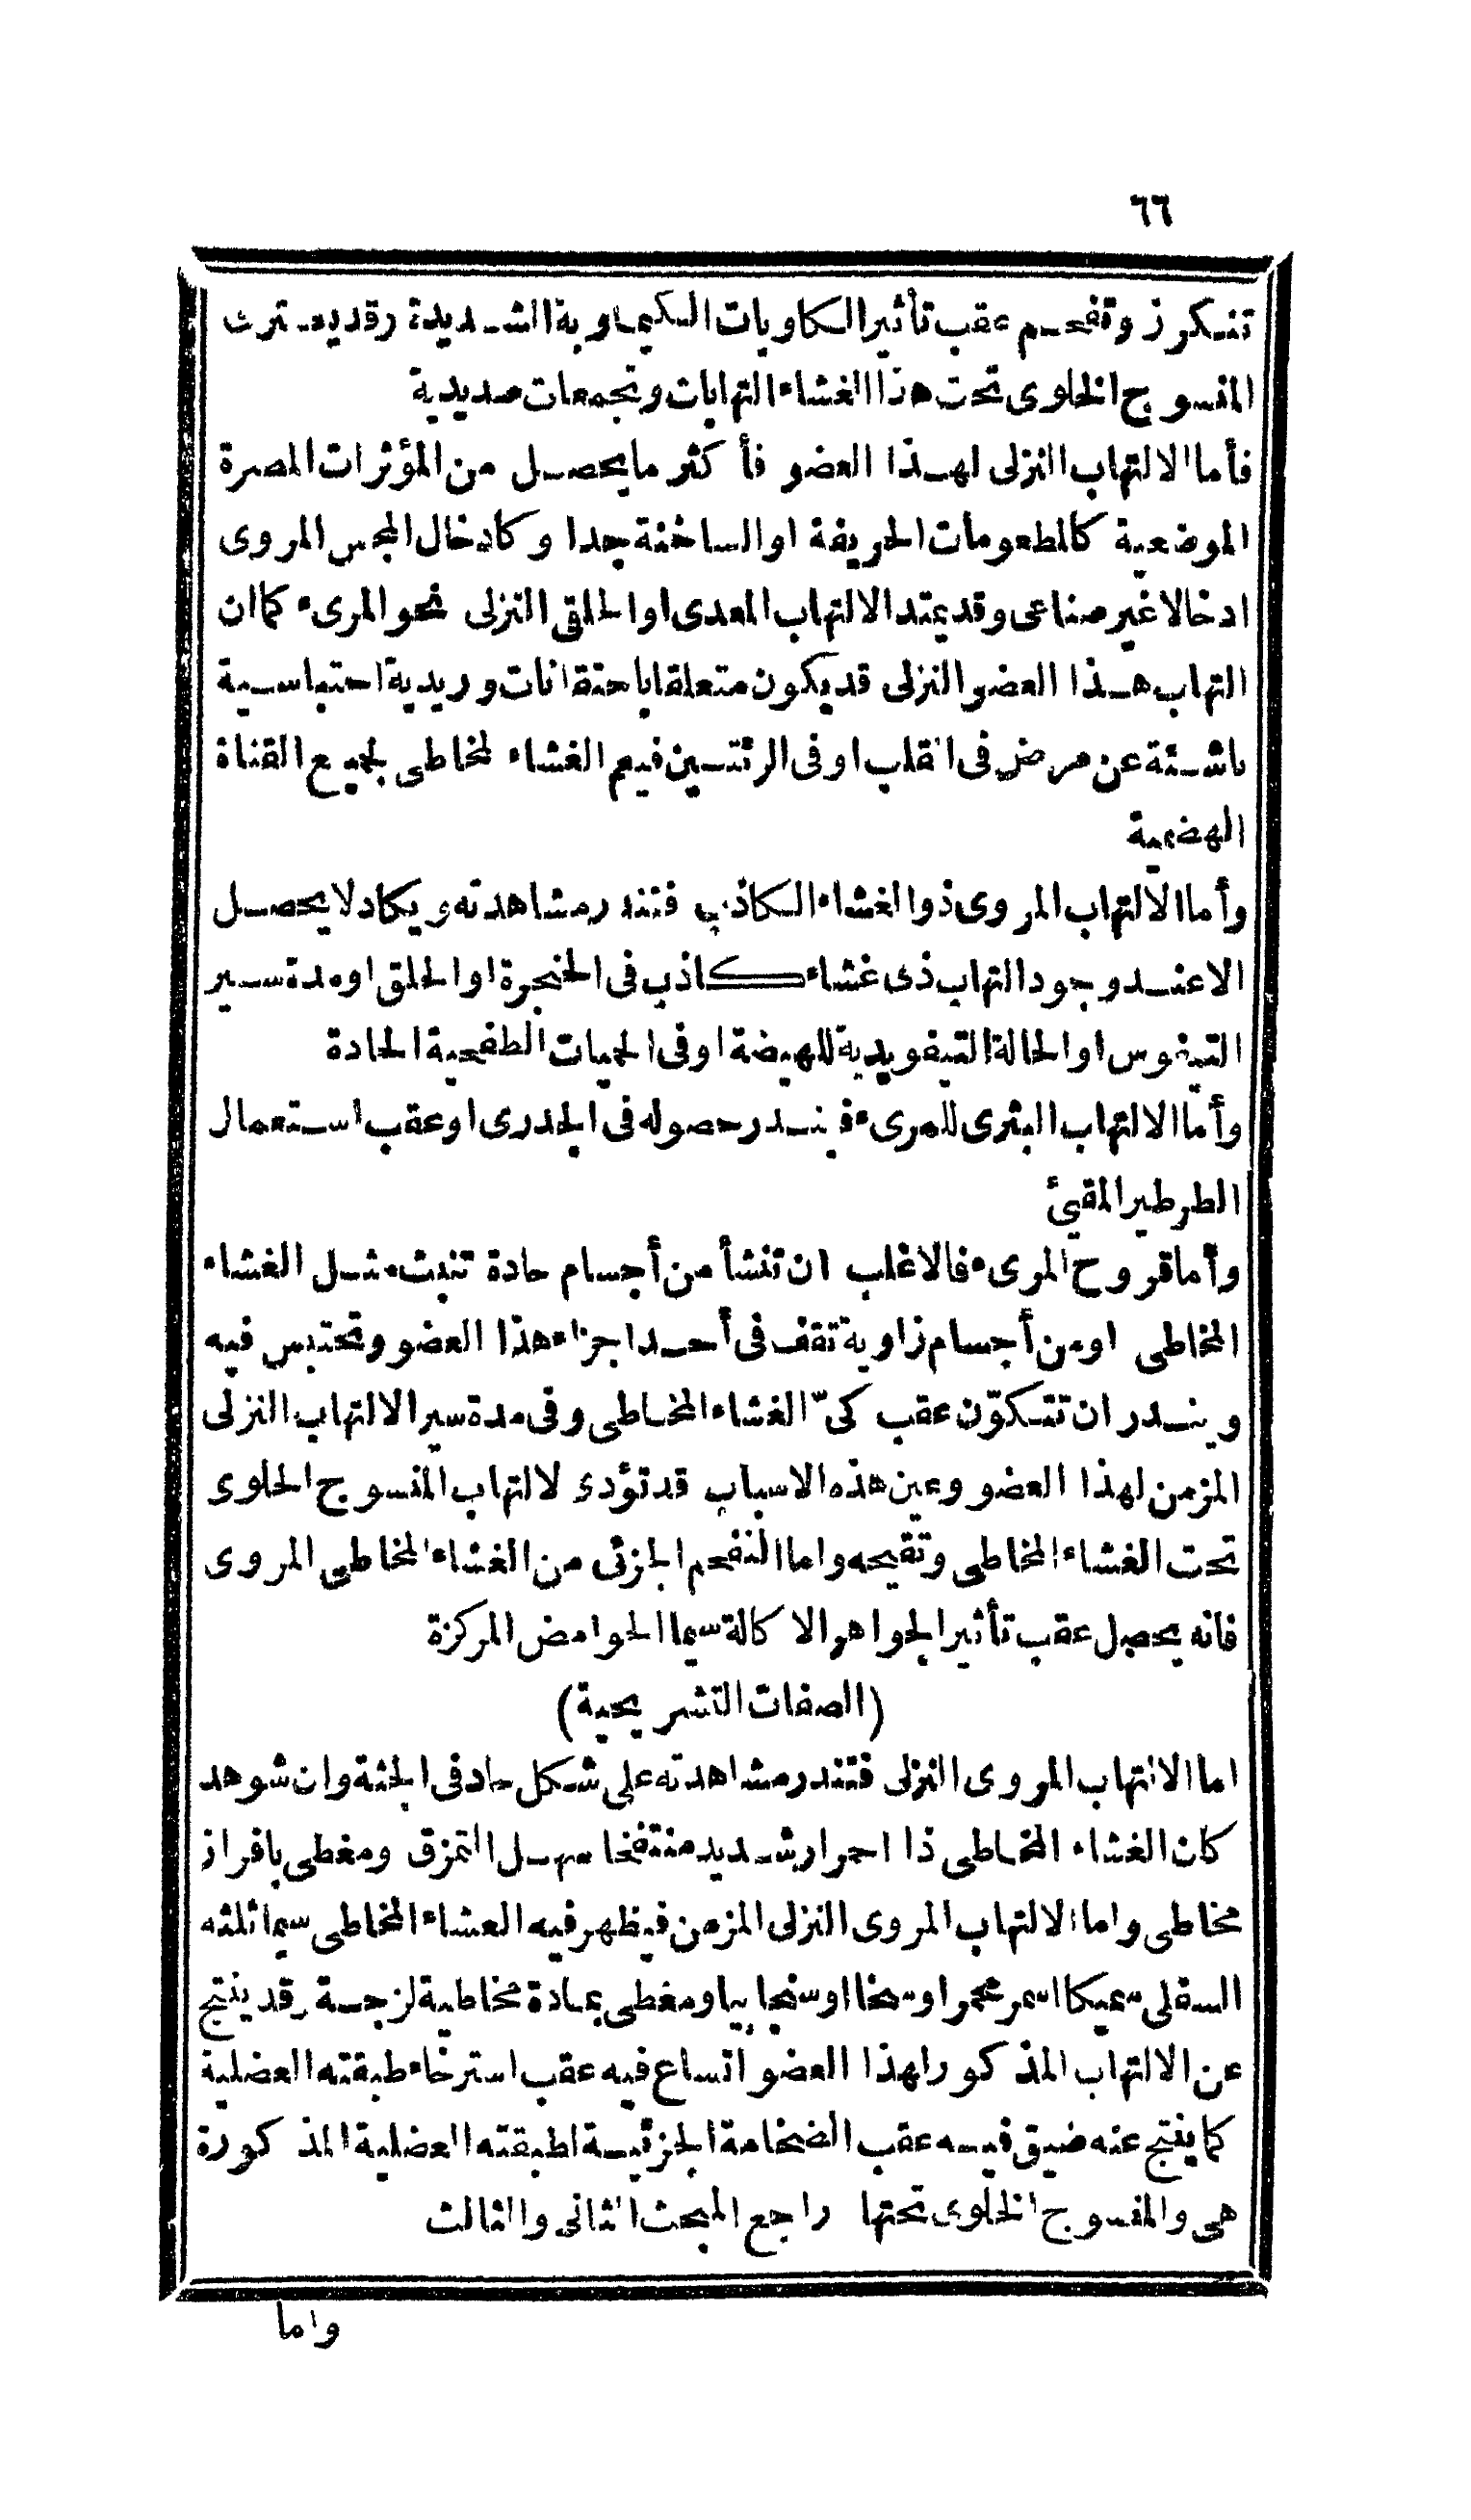 ٦٦
تنكرز وتفحم عقب تأثير الكاويات الكيماوية الشديدة وقد يعترى
المنسوج الخلوى تحت هذا الغشاء التهابات وتجمعات صديدية
فأما الالتهاب النزلى لهذا العضو فأكثر ما يحصل من المؤثرات المضرة
الموضعية كالمطعومات الحريفة او الساخنة جدا وكادخال المجس المروى
ادخالا غير صناعى وقد يمتد الالتهاب المعدى او الحلقى النزلى نحو المرىء كما ان
التهاب هذا العضو النزلى قد يكون متعلقا باحتقانات وريدية احتباسية
ناشئة عن مرض فى القلب او فى الرئتين فيعم الغشاء المخاطى لجميع القناة
الهضمية
وأما الالتهاب المروى ذو الغشاء الكاذب فتندر مشاهدته ويكاد لا يحصل
الا عند وجود التهاب ذى غشاء كاذب فى الحنجرة او الحلق او مدة سير
التيفوس او الحالة التيفويدية للهيضة او فى الحميات الطفحية الحادة
وأمّا الالتهاب البثرى للمرىء فيندر حصوله فى الجدرى او عقب استعمال
الطرطير المقيئ
وأما قروح المرىء فالاغلب ان تنشأ من أجسام حادة تنبث مثل الغشاء
المخاطى او من أجسام زاوية تقف فى أحد اجزاء هذا العضو وتحتبس فيه
ويندر ان تتكوّن عقب كىّ الغشاء المخاطى وفى مدة سير الالتهاب النزلى
المزمن لهذا العضو وعين هذه الاسباب قد تؤدى لالتهاب المنسوج الخلوى
تحت الغشاء المخاطى وتقيحه واما التفحم الجزئى من الغشاء المخاطى المروى
فانه يحصل عقب تأثير الجواهر الاكالة سيما الحوامض المركزة
(الصفات التشريحية)
اما الالتهاب المروى النزلى فتندر مشاهدته على شكل حاد فى الجثة وان شوهد
كان الغشاء المخاطى ذا احمرار شديد منتفخا سهل التمزق ومغطى بافراز
مخاطى واما الالتهاب المروى النزلى المزمن فيظهر فيه الغشاء المخاطى سيما ثلثه
السفلى سميكا اسمر محمرا وسخا او سنجابيا ومغطى بمادة مخاطية لزجة وقد ينتج
عن الالتهاب المذكور لهذا العضو اتساع فيه عقب استرخاء طبقته العضلية
كما ينتج عنه ضيق فيه عقب الضخامة الجزئية لطبقته العضلية المذكورة
هى والمنسوج الخلوى تحتها راجع المبحث الثانى والثالث
واما